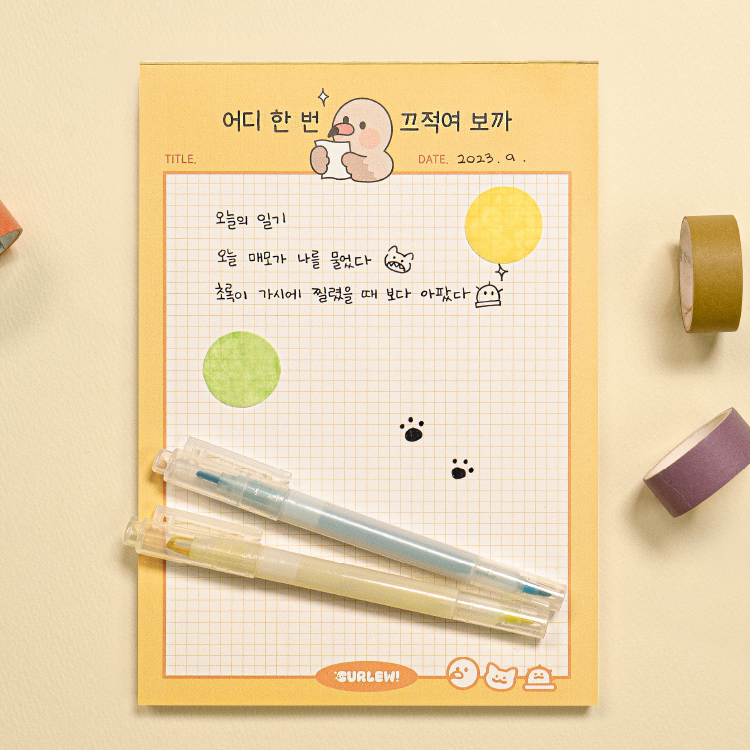 어디 한 번 끄적여 보까
TITLE.
DATE. 2023. 9.
오늘의 일기
오늘 매모가 나를 물었다
초록이 가시에 찔렸을 때 보다 아팠다
SURLEW!